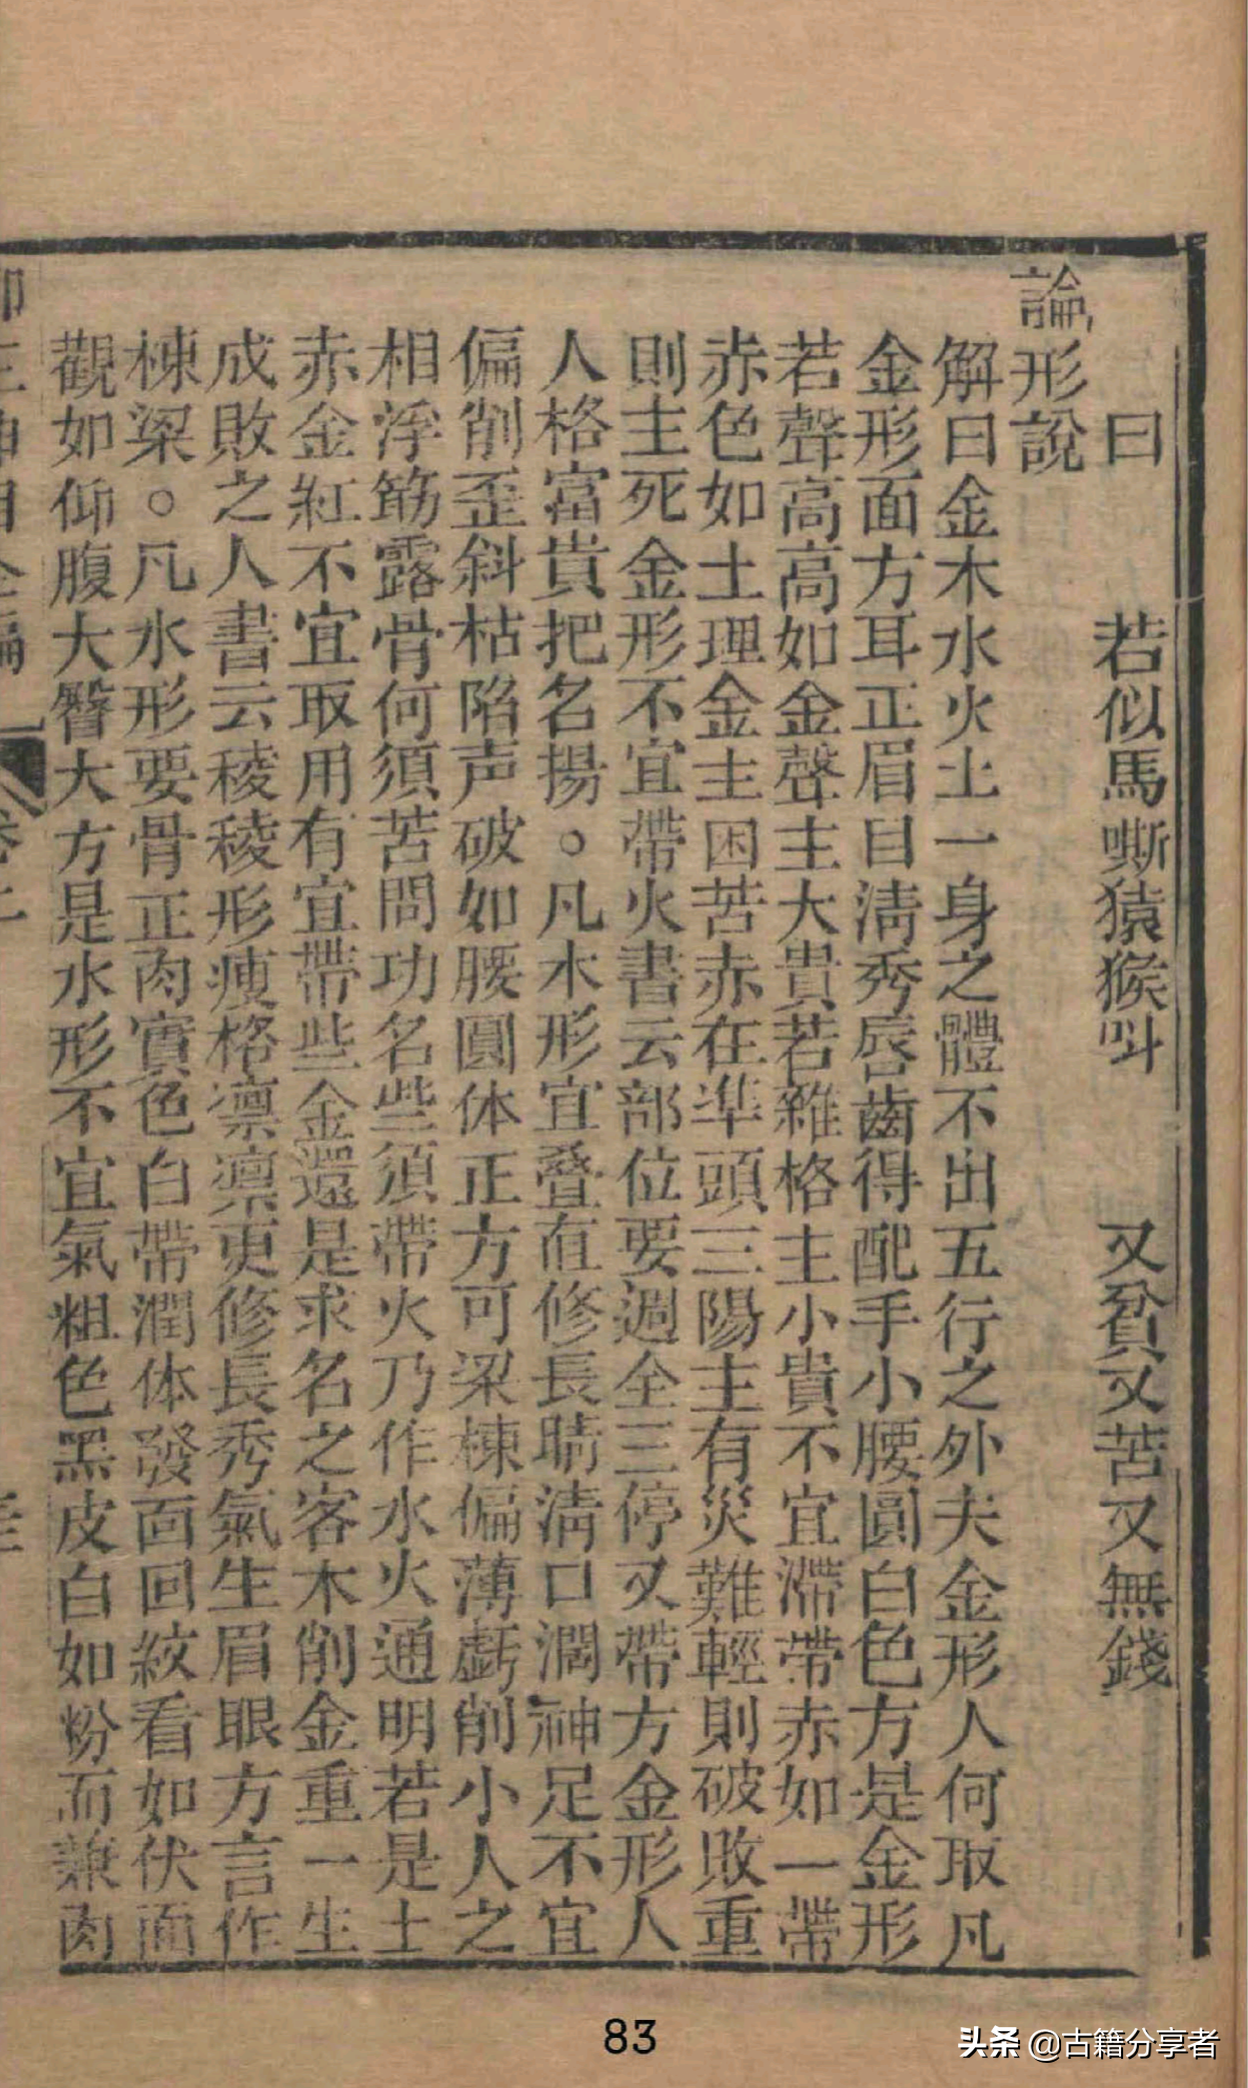 曰　若似馬嘶猿猴呌　又貧又苦又無錢
論形說
解曰金木水火土一身之體不出五行之外夫金形人何取凡
金形面方耳正眉目淸秀唇齒得配手小腰圓白色方是金形
若聲高高如金聲主大貴若雜格主小貴不宜滯帶赤如一帶
赤色如土理金主困苦赤在準頭三陽主有災難輕則破敗重
則主死金形不宜帶火書云部位要週全三停又帶方金形人
人格富貴把名揚。凡木形宜叠直修長睛淸口濶神足不宜
偏削歪斜枯陷声破如腰圓体正方可梁棟偏薄虧削小人之
相浮筋露骨何須苦問功名些須帶火乃作水火通明若是土
赤金紅不宜取用有宜帶些金還是求名之客木削金重一生
成敗之人書云稜稜形瘦格凛凛更修長秀氣生眉眼方言作
棟梁。凡水形要骨正肉實色白帶潤体發面回紋看如伏面
觀如仰腹大臀大方是水形不宜氣粗色黑皮白如粉而兼肉
83
头条 @古籍分享者